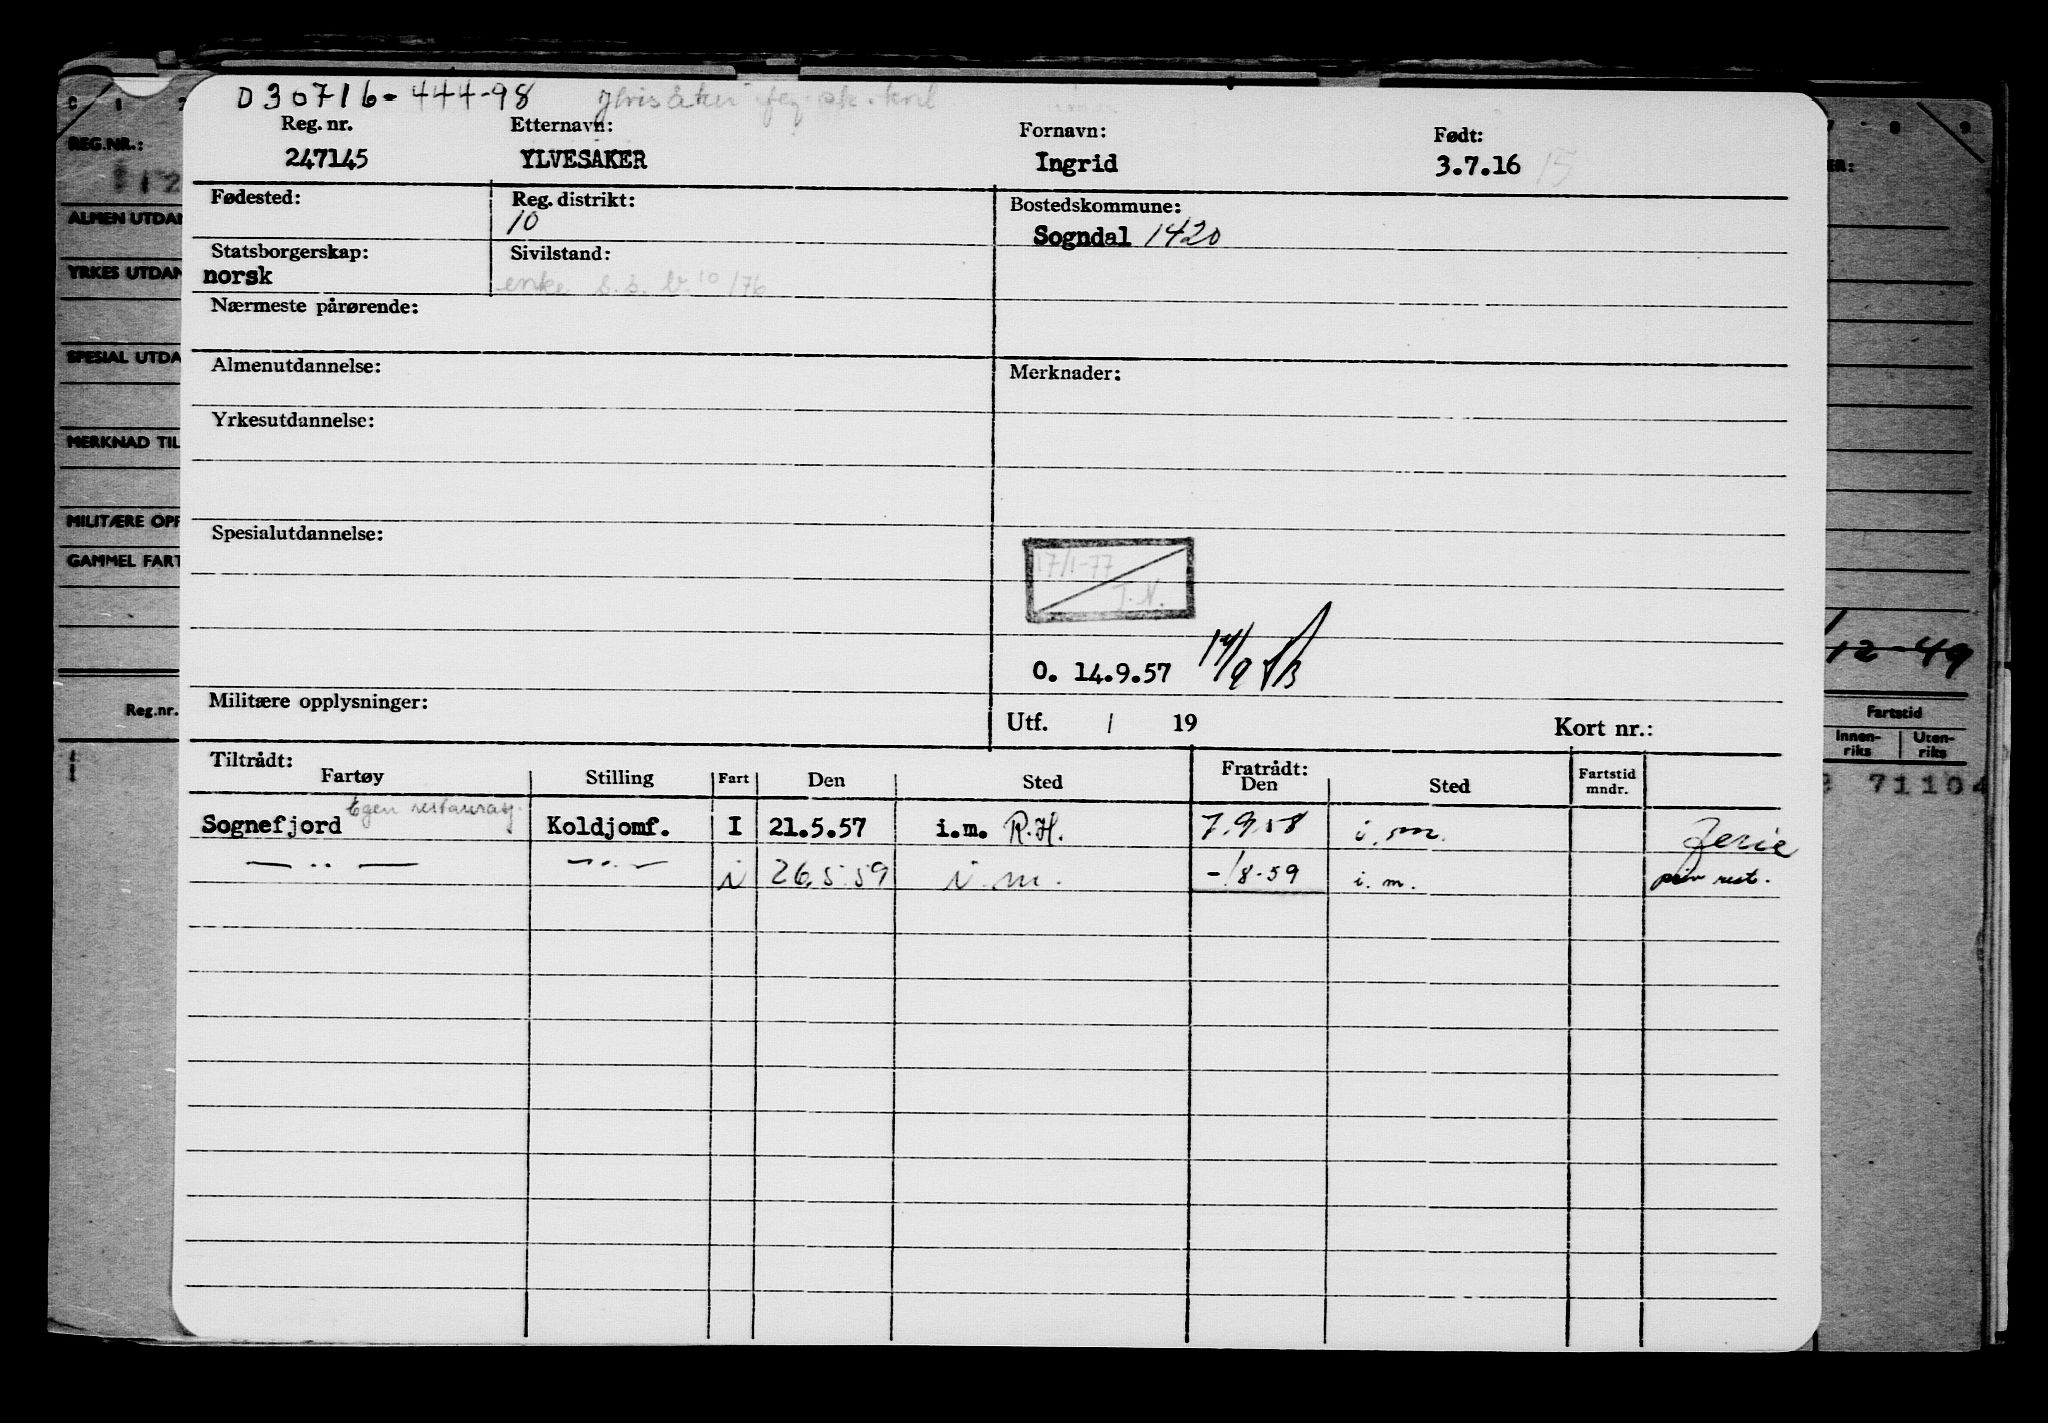 D 30716-444-98
Reg. nr. Etternavn: Fornavn: Født:
247145 YLVESAKER Ingrid 3.7.16 15
Fødested: Reg. distrikt: Bostedskommune:
10 Sogndal 1420
Statsborgerskap: Sivilstand:
norsk enke s.s. br. 10/76
Nærmeste pårørende:
Almenutdannelse: Merknader:
Yrkesutdannelse:
Spesialutdannelse:
17/1-77
J.N.
O. 14.9.57 14/9
Militære opplysninger: Utf. / 19 Kort nr.:
Tiltrådt: Fratrådt:
Fartøy Stilling Fart Den Sted Den Sted Fartstid mndr.
Egen restaurasj.
Sognefjord Koldjomf. I 21.5.57 i.m. R.H. 7.9.58 i.m. Ferie
— " — — " — i 26.5.59 i.m. -/8-59 i.m. priv rest.
C 1 2
REG.NR.:
12
ALMEN UTDAN
YRKES UTDAN
SPESIAL UTDA
MERKNAD TIL
MILITÆRE OPP
GAMMEL FART
Reg.nr.
8 9
ER:
/12-49
Fartstid
Innen-riks Uten-riks
71104